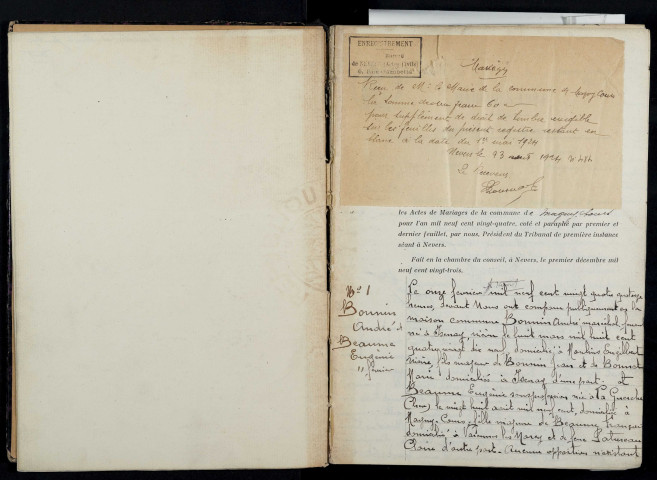 ENREGISTREMENT
Mariages
Recu de Mr le Maire de la commune de Magny Cours
la somme de
pour supplément de droit de timbre exigible
sur les feuilles du présent registre restant en
blanc à la date du 1er mai 1924
Nevers le 23 1924
Le Receveur
les Actes de Mariages de la commune de Magny-Cours
pour l'an mil neuf cent vingt-quatre, coté et paraphé par premier et
dernier feuillet, par nous, Président du Tribunal de première instance
séant à Nevers.
Fait en la chambre du conseil, à Nevers, le premier décembre mil
neuf cent vingt-trois.
No 1
Bonnin
André &
Beaume
Eugénie
11 février
Le onze février mil neuf cent vingt quatre
heures, devant Nous ont comparu publiquement en la
maison commune Bonnin André maréchal
né à Isenay, nièvre le huit mars mil huit cent
quatre vingt dix domicilié à Moulins Engilbert
nièvre, fils majeur de Bonnin Jean et de
Marie domiciliés à Isenay d'une part. et
Beaume Eugénie née à la Guerche
(Cher) le vingt huit août mil neuf cent, domiciliée à
Magny-Cours, fille majeure de Beaume François
domicilié à et de feue
Claire d'autre part. Aucune opposition n'existant